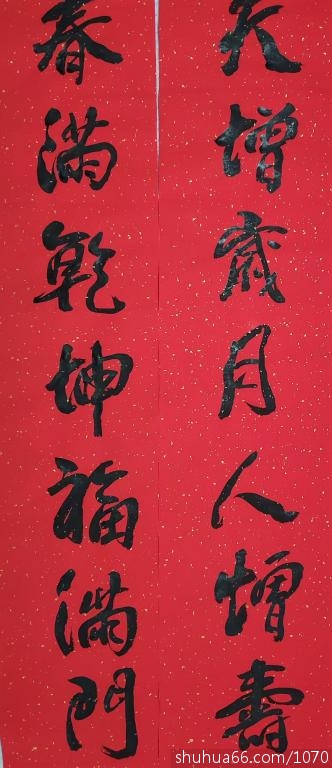 天增歲月人增壽
春滿乾坤福滿門
shuhua66.com/1070